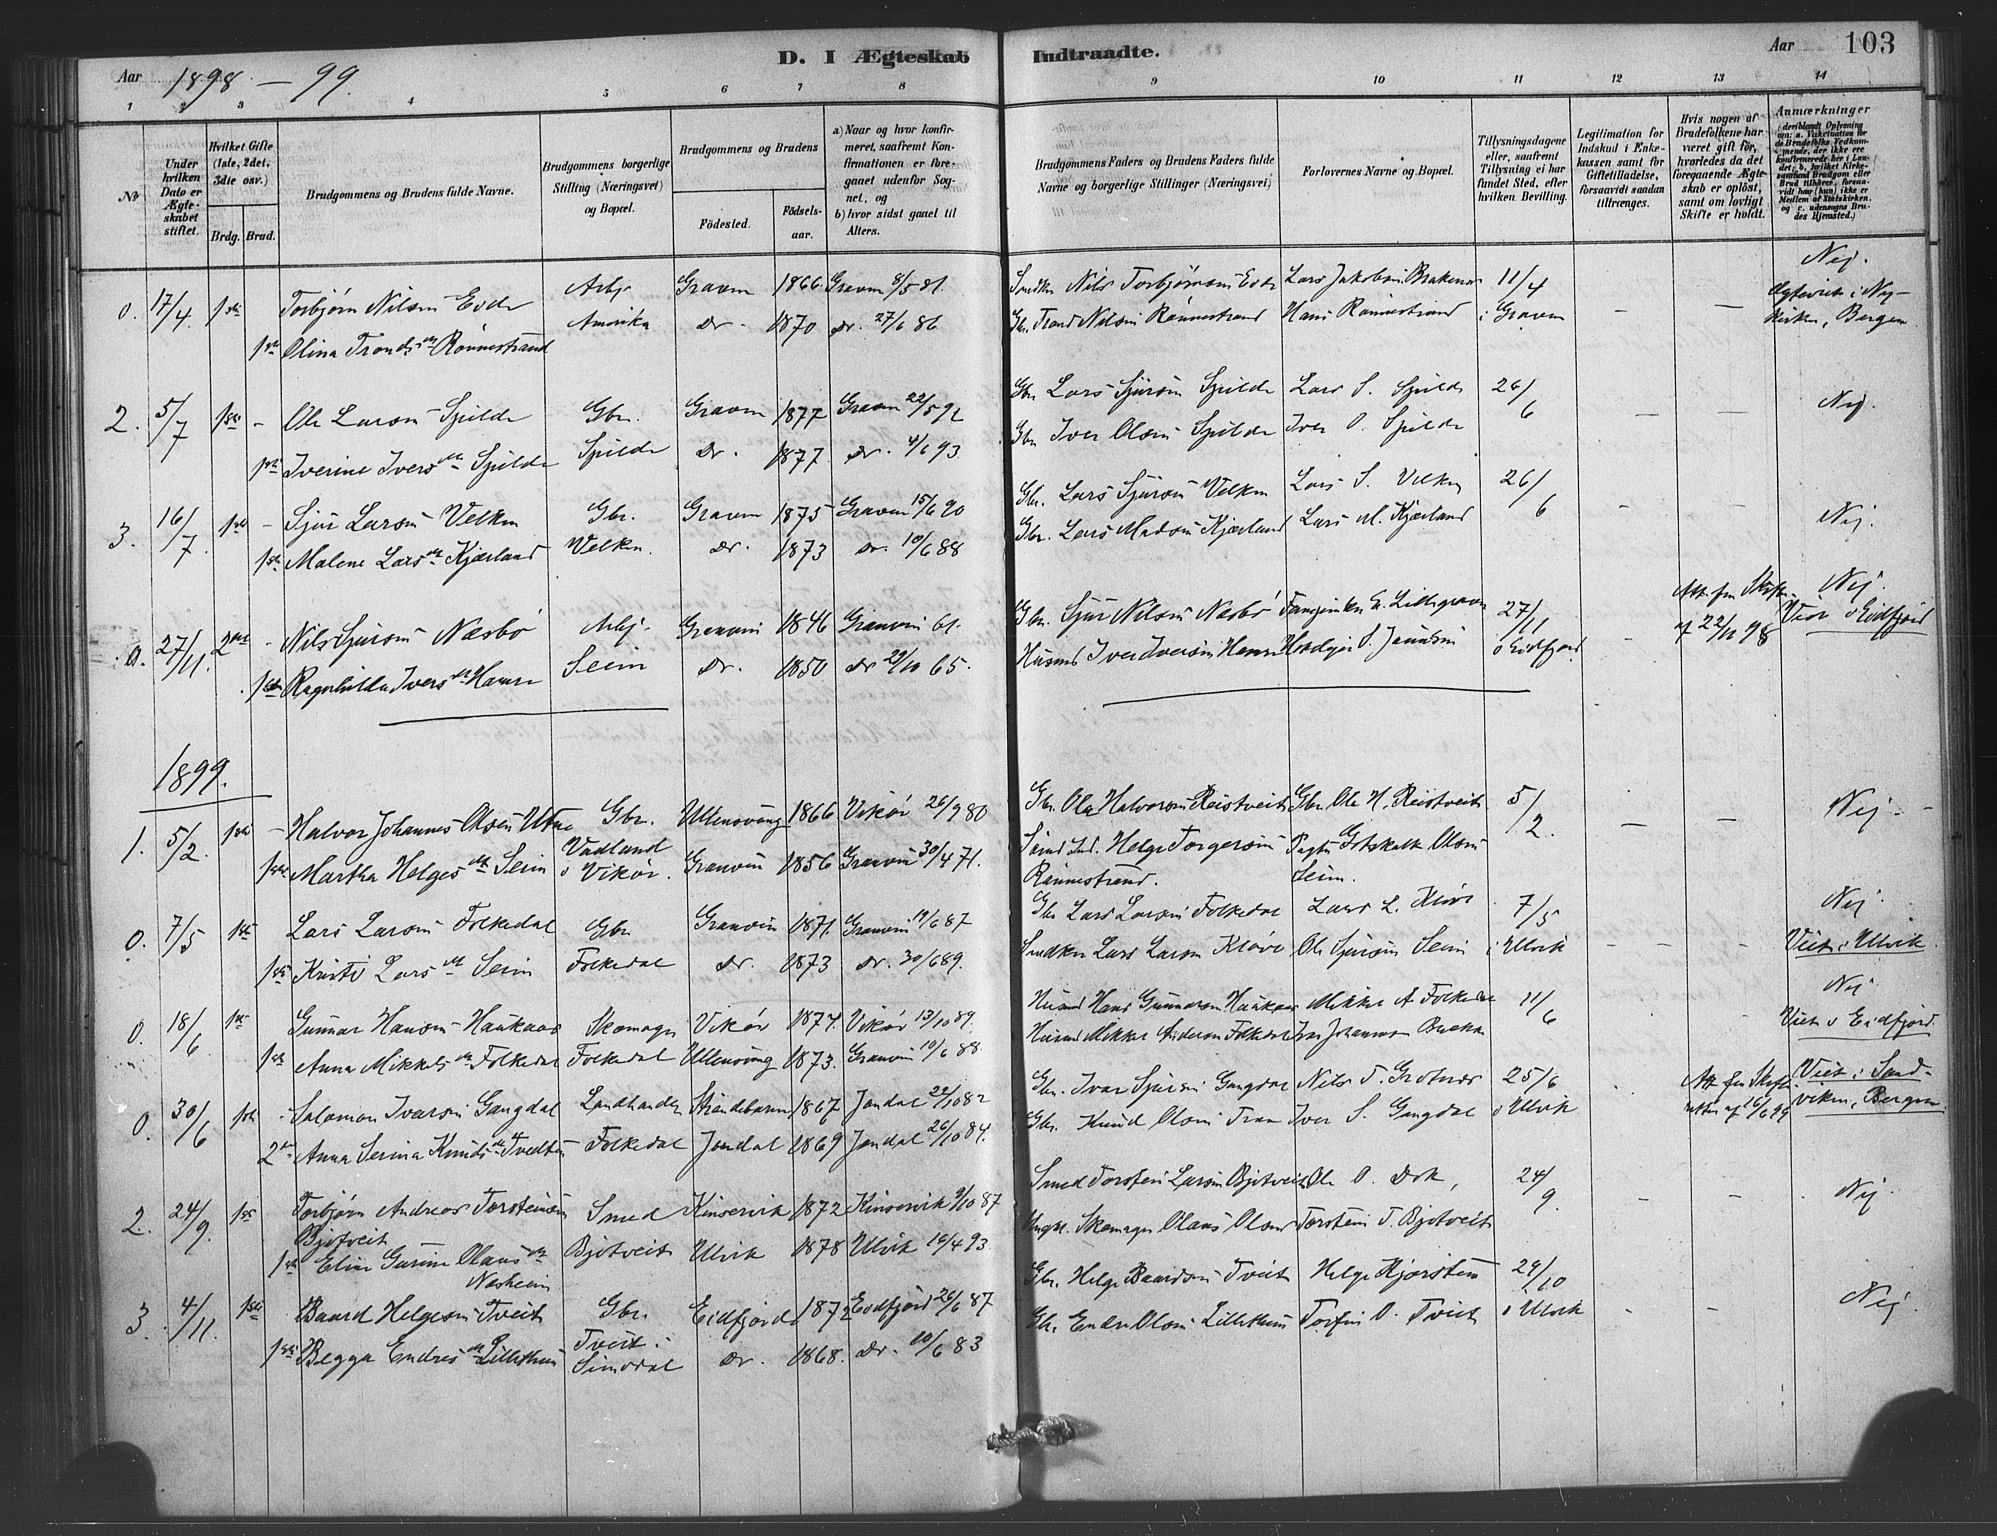 Aar 1898 – 99. D. I Ægteskab Indtraadte. Aar 103
1 2 3 4 5 6 7 8 9 10 11 12 13 14
№
Under hvilken Dato er Ægteskabet stiftet.
Hvilket Gifte (1ste, 2det, 3die osv.)
Brdg. Brud.
Brudgommens og Brudens fulde Navne.
Brudgommens borgerlige Stilling (Næringsvei) og Bopæl.
Brudgommens og Brudens
Fødested. Fødselsaar.
a) Naar og hvor konfirmeret, saafremt Konfirmationen er foregaaet udenfor Sognet, og
b) hvor sidst gaaet til Alters.
Brudgommens Faders og Brudens Faders fulde Navne og borgerlige Stillinger (Næringsvei)
Forlovernes Navne og Bopæl.
Tillysningsdagene eller, saafremt Tillysning ei har fundet Sted, efter hvilken Bevilling.
Legitimation for Indskud i Enkekassen samt for Giftetilladelse, forsaavidt saadan tiltrænges.
Hvis nogen af Brudefolkene har været gift før, hvorledes da det foregaaende Ægteskab er opløst, samt om lovligt Skifte er holdt.
Anmærkninger
0. 17/4. 1ste Torbjørn Nilsen Eide Arbr. Graven 1866. Graven 8/5 81. Nils Torbjørnsen Eide Lars Jakobsen 11/4 – – Nej.
1ste Olina Tronds dtr Rønnestrand Amerika do. 1870 do. 27/6 86 Gbr. Trond Nilsen Rønnestrand Hans Rønnestrand i Graven Bergen
2. 5/7 1ste – Ole Larsen Spilde Gbr. Graven 1877 Graven 22/5 92 Gbr Lars Sjursen Spilde Lars S. Spilde 26/6 – – Nej.
1ste Iverine Ivers dtr Spilde Spilde do. 1877. do. 4/6 93. Gbr Iver Olsen Spilde Iver O. Spilde
3. 16/7. 1ste – Sjur Larsen Velken Gbr. Graven 1875 Graven 15/6 90 Gbr. Lars Sjursen Velken Lars S. Velken 26/6 – – Nej.
1ste Malene Lars dtr Kjærland Velken. do. 1873 do. 10/6 88 Gbr. Lars Madsen Kjærland Lars M. Kjærland
0. 27/11. 2det – Nils Sjursen Næsbø Arbj. Granvin 1846 Granvin 61. Gbr. Sjur Nilsen Næsbø Lillegraven 27/11 – Att. fra Skifter. af 22/11 98 Nej.
1ste Ragnhilda Ivers dtr Hamre Seim do. 1850 do 29/10 65. Husmd Iver Iversen Hamre Jensen i Eidfjord Viet i Eidfjord
1899.
1. 5/2. 1ste – Halvor Johannes Olsen Utne Gbr. Ullensvang 1866 Vikør 26/9 80 Gbr. Ola Halvorsen Reistveit Gbr. Ole H. Reistveit 5/2. – – Nej.
1ste Martha Helges dtr Seim Vadland i Vikør. Granvin 1856 Granvin 30/4 71. Helge Torgersen Rønnestrand. Gotskalk Olsen Seim.
0. 7/5 1ste Lars Larsen Folkedal Gbr Granvin 1871. Granvin 19/6 87 Gbr Lars Larsen Folkedal Lars L. Kløve 7/5 – – Nej.
1ste Kristi Lars dtr Seim Folkedal do. 1873 do. 30/6 89. Lars Larsen Kløve Ole Sjursen Seim i Ulvik Viet i Ulvik.
0. 18/6 1ste Gunnar Hansen Haukaas Skomager Vikør 1874. Vikør 13/10 89. Husmd Hans Gunnarsen Haukaas Mikkel A Folkedal 11/6 Nej
1ste Anna Mikkels dtr Folkedal Folkedal Ullensvang 1873. Granvin 10/6 88 Husmd Mikkel Andersen Folkedal Johannes Viet i Eidfjord.
0. 30/6 1ste Salomon Ivarsen Gangdal Landhandler Strandebarm 1867 Jondal 22/10 82 Gbr. Ivar Sjursen Gangdal Nils T. Grotnes 25/6 Att. fra Skifteretten af 16/6 99 Viet i Sandviken, Bergen.
2det Anna Serina Knuds dtr Tvedten Folkedal Jondal 1869 Jondal 26/10 84. Gbr. Knud Olsen Iver S. Gangdal i Ulvik
2. 24/9. 1ste Torbjørn Andreas Torsteinsen Bjotveit Smed Kinservik 1872 Kinservik 9/10 87 Smed Torstein Larsen Bjotveit Ole O. 24/9. – – Nej
1ste Eline Gurine Olaus dtr Næsheim Bjotveit Ulvik 1878 Ulvik 16/4 93 Ungk. Skomager Olaus Olsen Torstein T. Bjotveit
3. 4/11. 1ste Baard Helgesen Tveit Gbr. Eidfjord 1872 Eidfjord 26/6 87 Gbr. Helge Baardsen Tveit Helge Kjørstein 29/10 – – Nej
1ste Begga Endres dtr Lillethun Tveit i Simodal do. 1868. do. 10/6 83 Gbr. Endre Olsen Lillethun Torfin O. Tveit i Ulvik